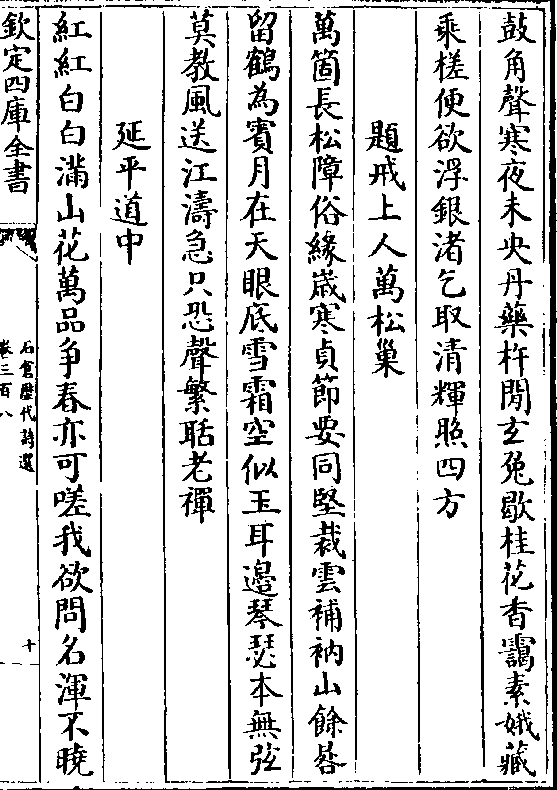 鼓角聲寒夜未央丹藥杵閒玄兔歇桂花香靄素娥藏
乘槎便欲浮銀渚乞取清輝照四方
題戒上人萬松巢
萬箇長松障俗緣歲寒貞節要同堅裁雲補衲山餘畚
留鶴為賓月在天眼底雪霜空似玉耳邊琴瑟本無弦
莫教風送江濤急只恐聲繁聒老禪
延平道中
紅紅白白滿山花萬品争春亦可嗟我欲問名渾不曉
欽定四庫全書
石倉歷代詩選
卷三百八
十